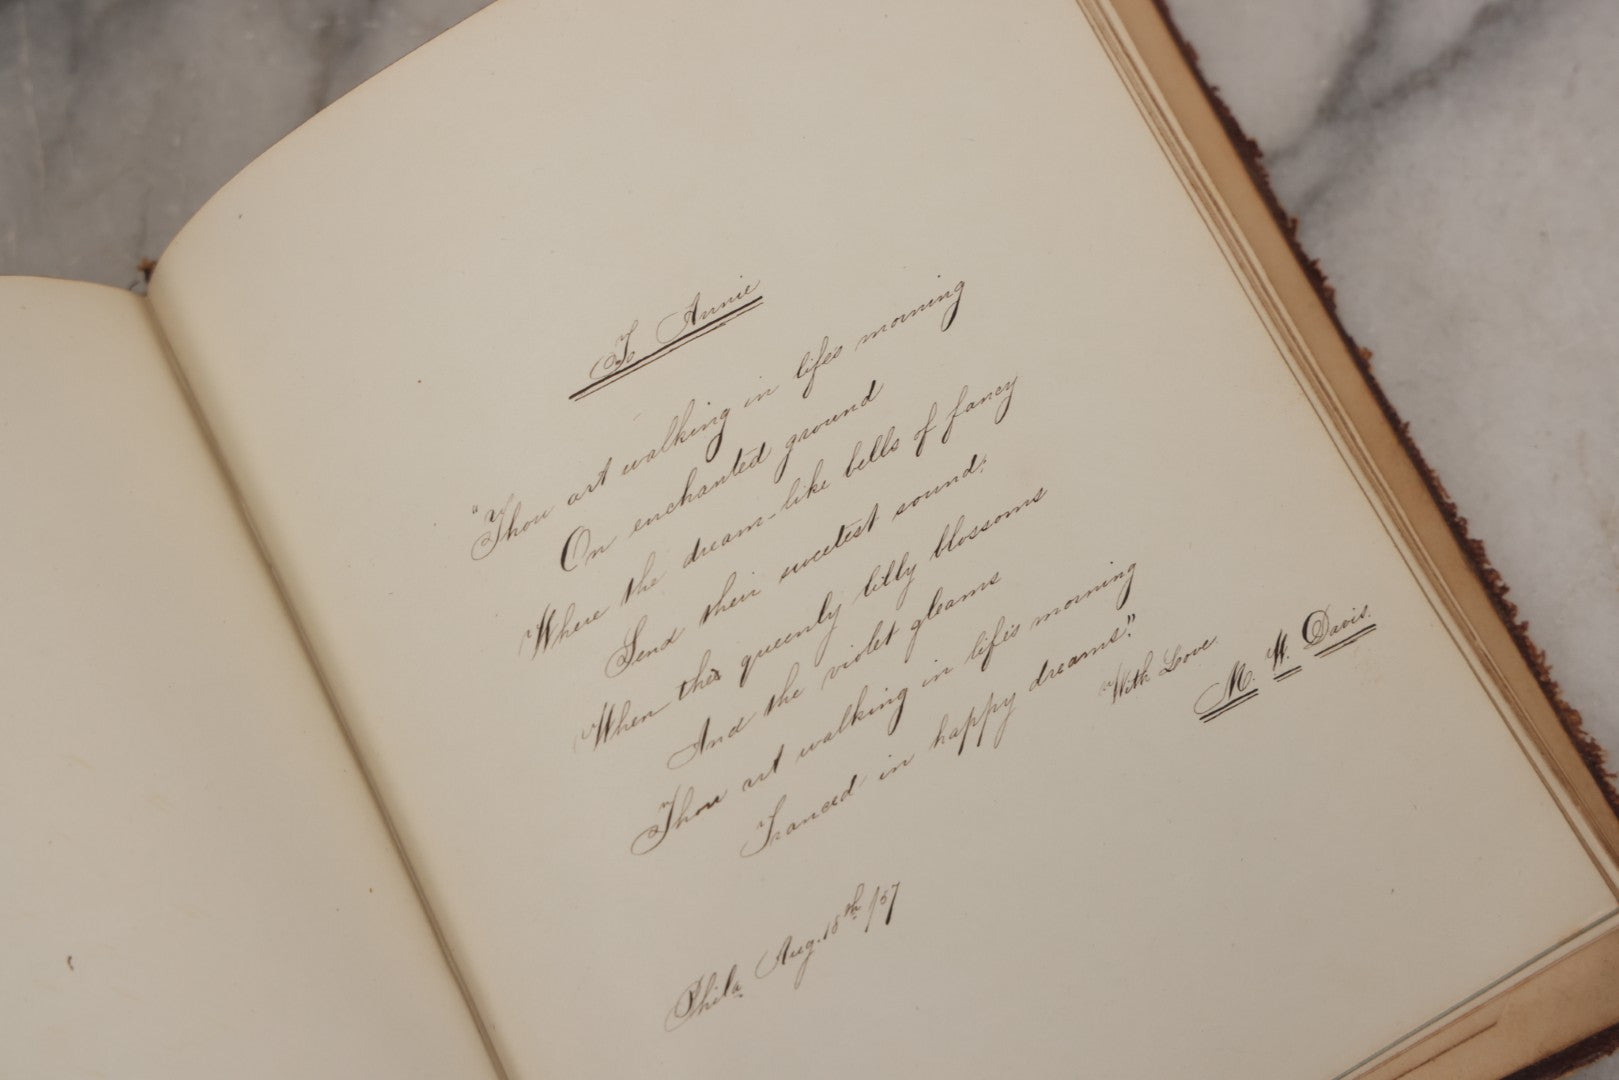 To Annie
"Thou art walking in lifes morning
On enchanted ground
Where the dream-like bells of fancy
Send their sweetest sound;
When the queenly lilly blossoms
And the violet gleams
Thou art walking in life's morning
Tranced in happy dreams."
With Love
M. W. Davis.
Phila Aug. 18th /57